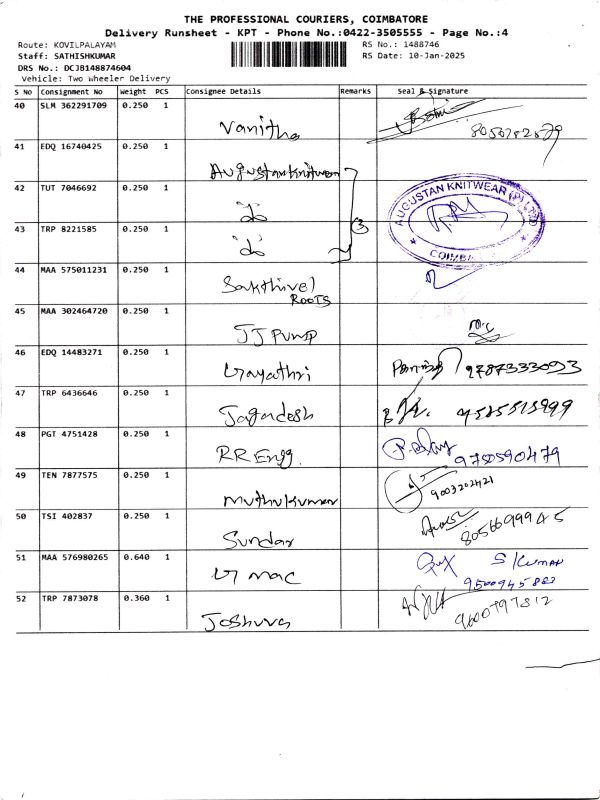 THE PROFESSIONAL COURIERS, COIMBATORE
Delivery Runsheet - KPT - Phone No.:0422-3505555 - Page No.:4
Route: KOVILPALAYAM RS No.: 1488746
Staff: SATHISHKUMAR RS Date: 10-Jan-2025
DRS No.: DCJB148874604
Vehicle: Two Wheeler Delivery
S No Consignment No Weight PCS Consignee Details Remarks Seal & Signature
40 SLM 362291709 0.250 1 Vanitha
41 EDQ 16740425 1 Augustan knitwear
42 TUT 7046692 0.250 1 do
AUGUSTAN KNITWEAR (P) LTD
43 TRP 8221585 0.250 1 do 3
COIMBA
44 MAA 575011231 0.250 1 Sakthivel
ROOTS
45 MAA 302464720 0.250 1 JJ Pump
46 EDQ 14483271 0.250 1 Gayathri 9787333093
47 TRP 6436646 0.250 1 Jagadesh
48 PGT 4751428 0.250 1 RR Engg. 9750590479
49 TEN 7877575 0.250 1 Muthukumar 9003202421
50 TSI 402837 0.250 1 Sundar 8056699945
51 MAA 576980265 0.640 1 G mac S KUMAR
52 TRP 7873078 0.360 1 Joshuva